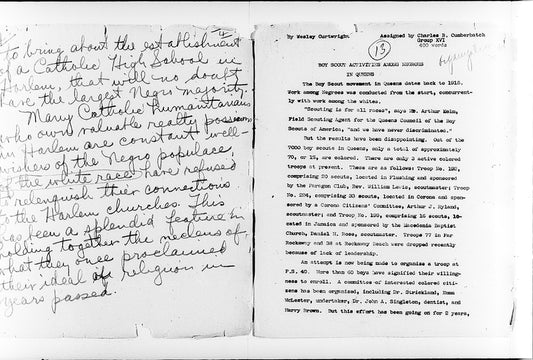 to bring about the establishment
of a Catholic High School in
Harlem, that will no doubt
have the largest Negro majority.
Many Catholic humanitarians
who own valuable realty possessions
in Harlem are constant well-
wishers of the Negro populace,
of the white race have refused
to relenguish their connections
to the Harlem churches. This
has been a splendid feature in
holding together the necleus of
what they once proclaimed
their ideal of religion in
years passed.
4
By Wesley Curtwright
Assigned by Charles B. Cumberbatch
Group XVI
400 words
13
BOY SCOUT ACTIVITIES AMONG NEGROES
IN QUEENS
The Boy Scout movement in Queens dates back to 1918.
Work among Negroes was conducted from the start, concurrent-
ly with work among the whites.
"Scouting is for all races", says Mr. Arthur Keim,
Field Scouting Agent for the Queens Council of the Boy
Scouts of America, "and we have never discriminated."
But the results have been disappointing. Out of the
7000 boy scouts in Queens, only a total of approximately
70, or 1%, are colored. There are only 3 active colored
troops at present. These are as follows: Troop No. 192,
comprising 20 scouts, located in Flushing and sponsored
by the Paragon Club, Rev. William Lewis, scoutmaster; Troop
No. 234, comprising 33 scouts, located in Corona and spon-
sored by a Corona Citizens' Committee, Arthur J. Hyland,
scoutmaster; and Troop No. 190, comprising 16 scouts, lo-
cated in Jamaica and sponsored by the Macedonia Baptist
Church, Daniel H. Rose, scoutmaster. Troops 77 in Far
Rockaway and 32 at Rockaway Beach were dropped recently
because of lack of leadership.
An attempt is now being made to organize a troop at
P.S. 40. More than 60 boys have signified their willing-
ness to enroll. A committee of interested colored citi-
zens has been organized, including Dr. Strickland, Emma
McLester, undertaker, Dr. John A. Singleton, dentist, and
Harry Brown. But this effort has been going on for 2 years,